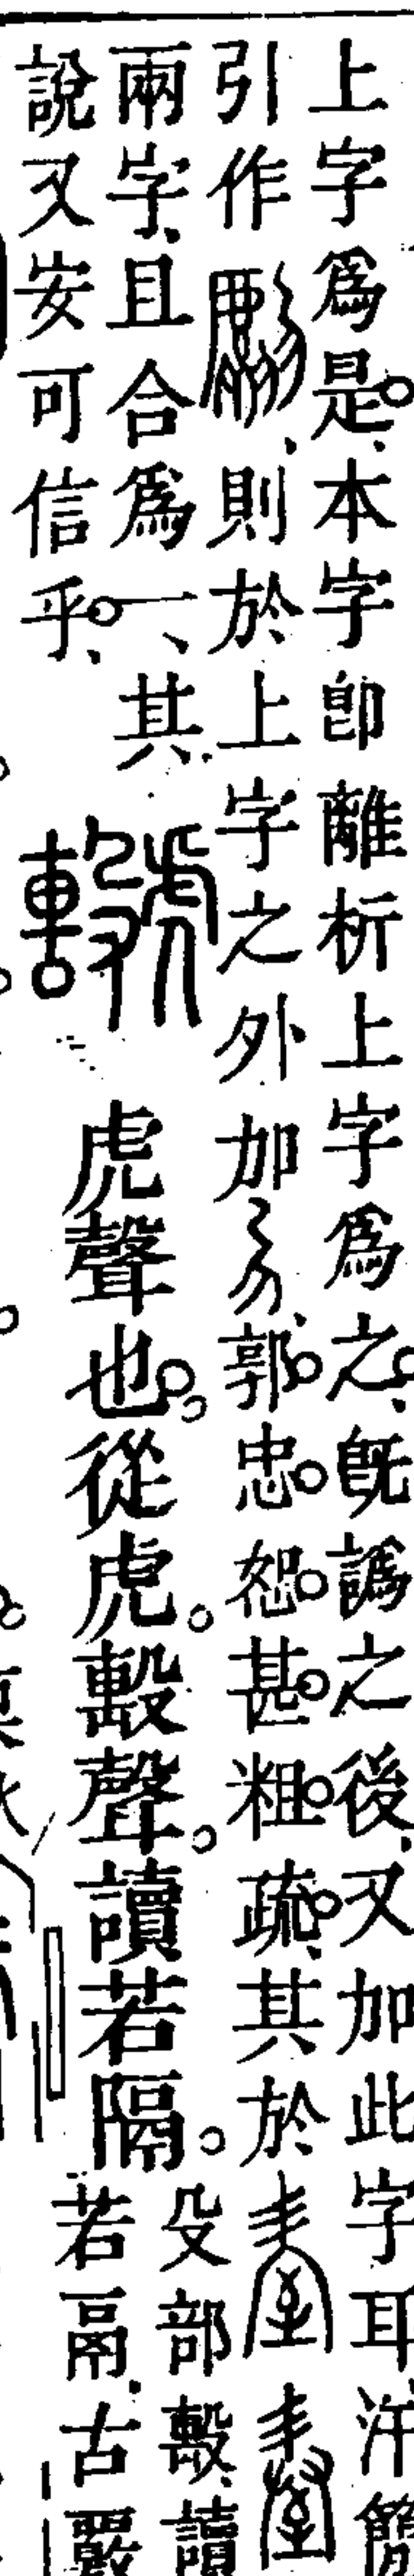 上字爲是本字卽離析上字爲之旣譌之後又加此字耳汗簡
引作則於上字之外加郭忠恕甚粗疏其於
兩字且合爲一其
說又安可信乎
虎聲也從虎毄聲讀若隔
殳部毄讀
若鬲古覈